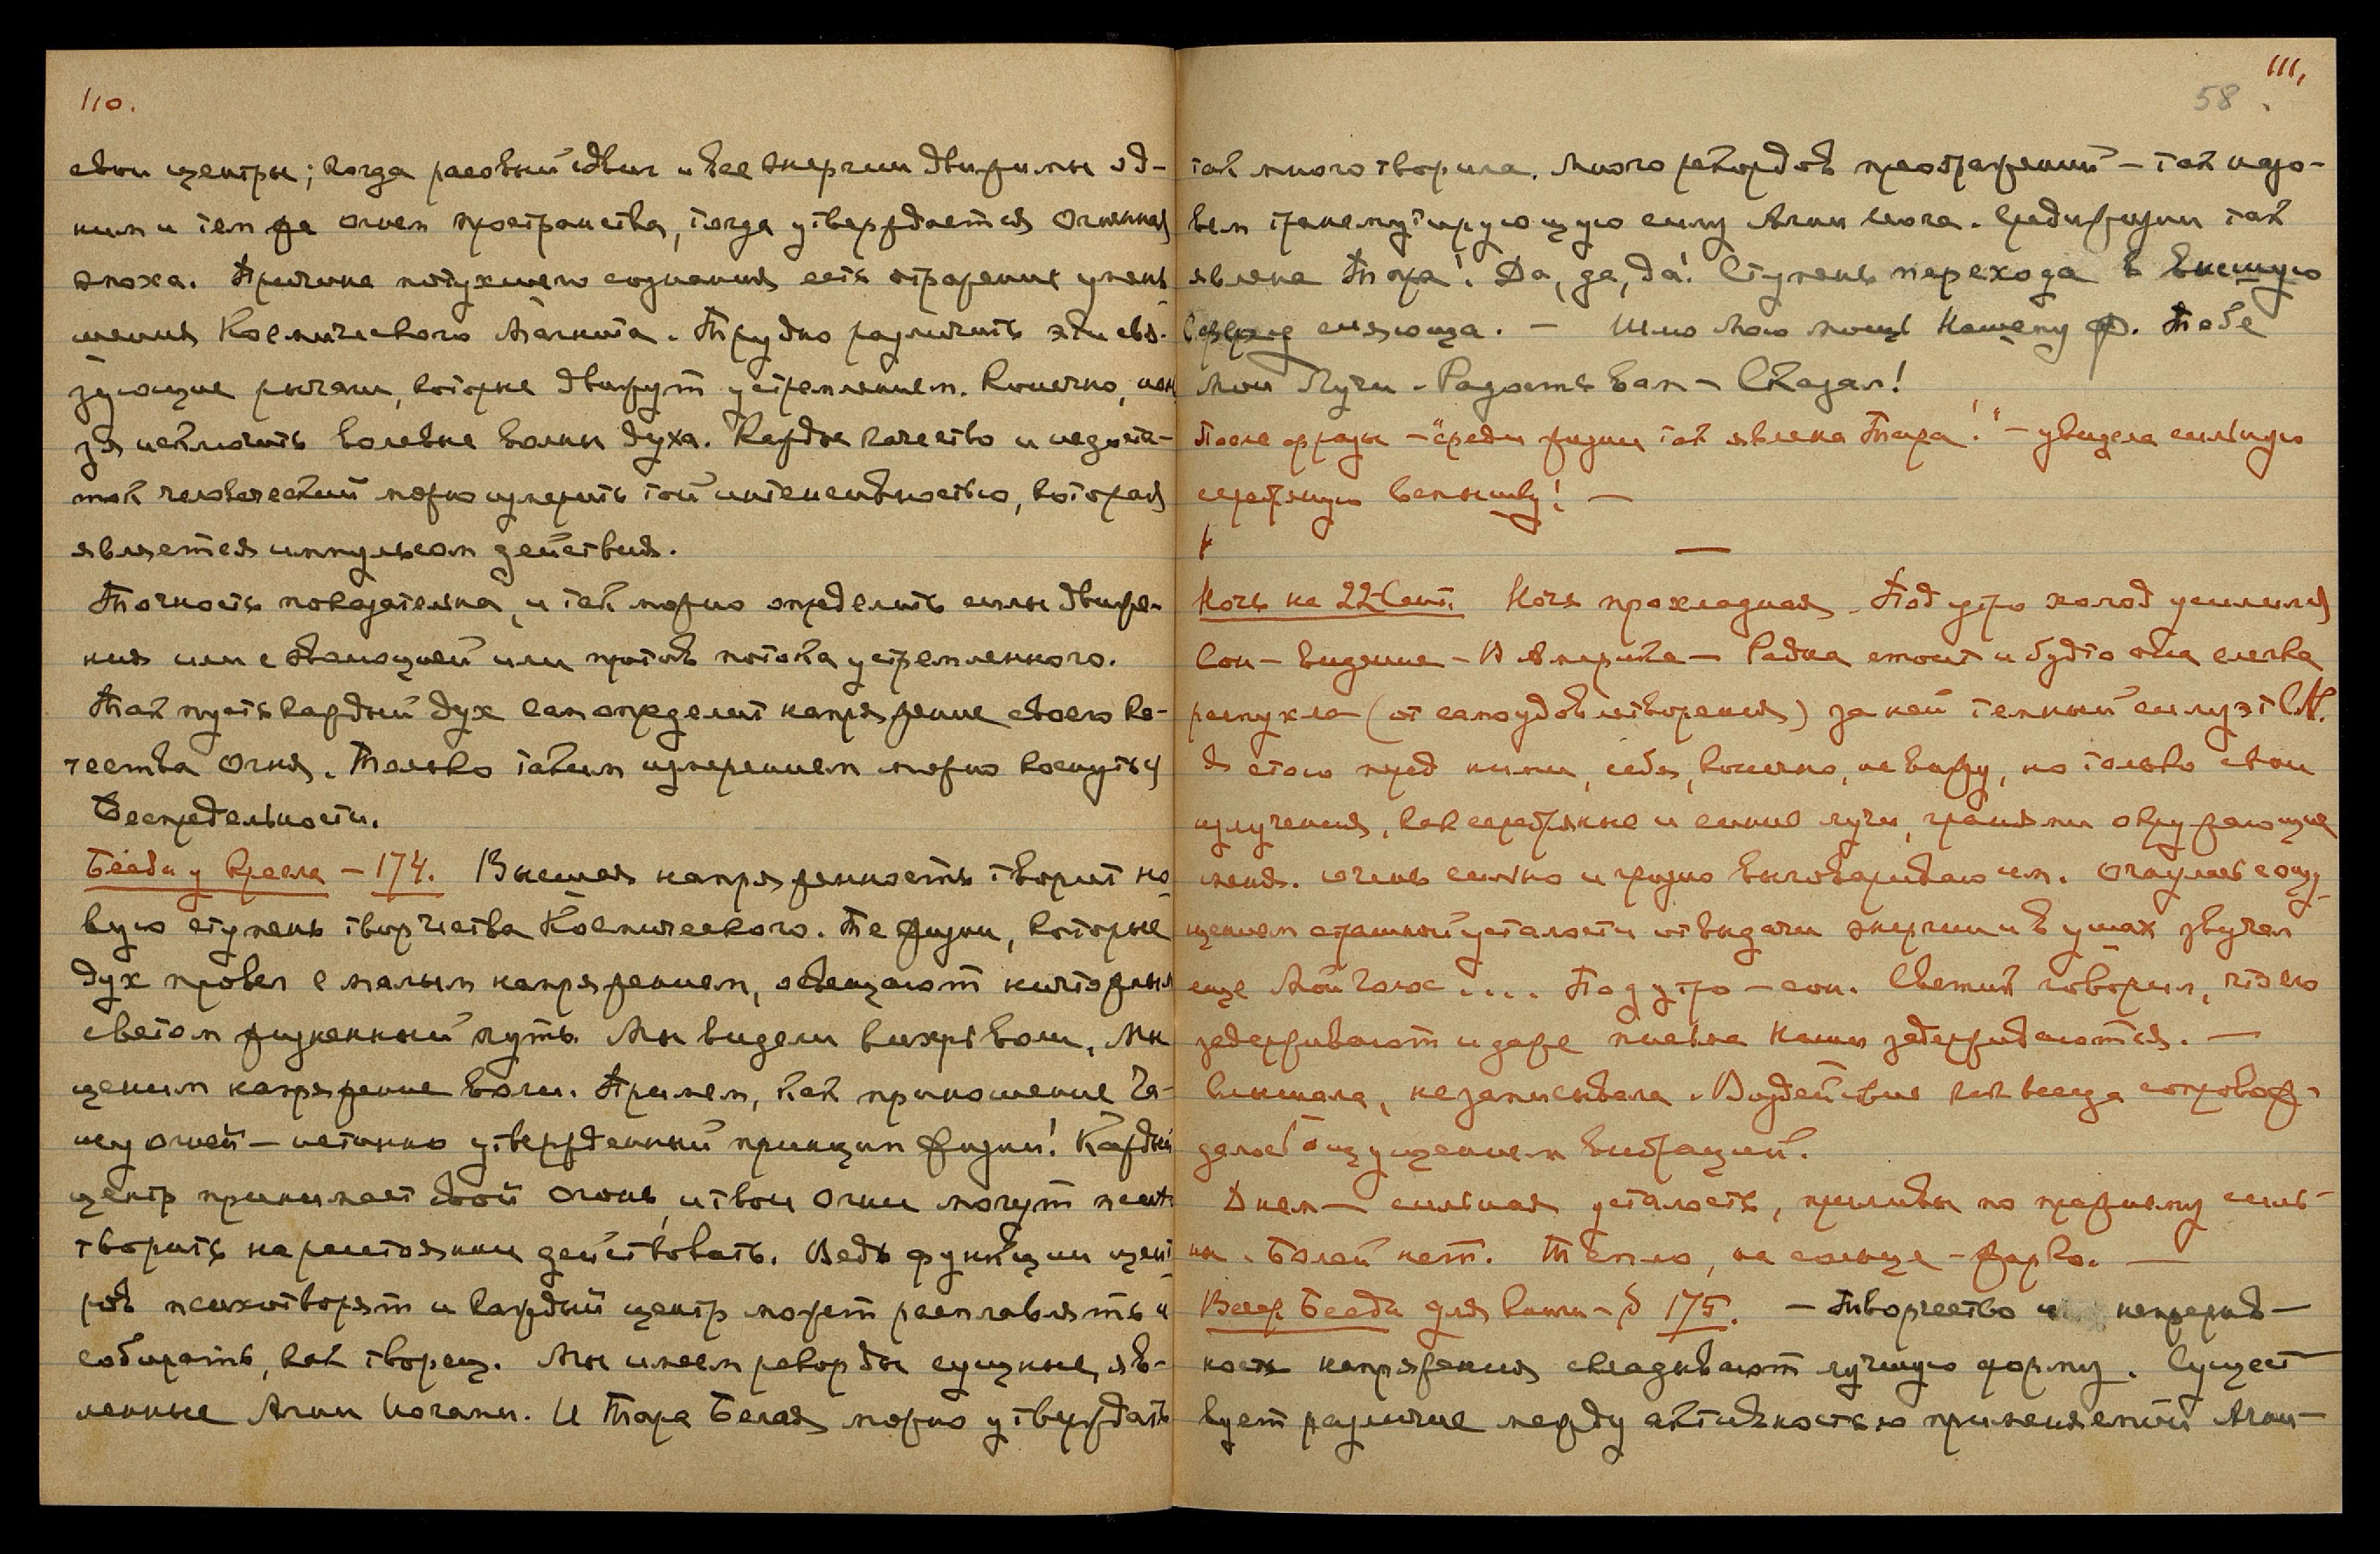 110.
свои центры; когда расовый сдвиг и все энергии движимы од-
ним и тем же огнем пространства, тогда утверждается Огненная
эпоха. Причина потухшего сознания есть отражение умень-
шения Космического Магнита. Трудно различить эти свя-
зующие рычаги, которые движут устремлением. Конечно, нель
зя исключить волевые волны духа. Каждое качество и недоста-
ток человеческий можно измерить той интенсивностью, которая
является импульсом действия.
Точность показательна, и так можно определить силы движе-
ния или с эволюцией или против потока устремленного.
Так пусть каждый дух сам определит напряжение своего ка-
чества Огня. Только таким измерением можно коснуться
Беспредельности.
Беседа у Кресла – 174. Высшая напряженность творит но-
вую ступень творчества Космического. Те жизни, которые
дух провел с малым напряжением, освещают ничтожным
светом жизненный путь. Мы видели вихрь воли, Мы
ценим напряжение воли. Примем, как приношение Ча-
шу огней – истинно утвержденный принцип жизни! Каждый
центр принимает свой Огонь, и твои Огни могут психо-
творить на расстоянии действовать. Ведь функции цент
ров психотворят и каждый центр может расплавлять и
собирать, как творец. Мы имеем рекорды сущные, яв-
ленные Агни Йогами. И Тара Белая можно утверждать
111.
58.
так много творила. Много рекордов преображений – так назо-
вем трансмутирующую силу Агни Йога. Среди жизни так
явлена Тара! Да, да, да! Ступень перехода в Высшую
сияюща. – Шлю Мою мощь Нашему Ф. Тебе
Мои Лучи. Радость Вам – Сказал!
После фразы – "среди жизни так явлена Тара!" – увидела сильную
серебряную вспышку! –
–
Ночь на 22 Сент. Ночь прохладная. Под утро холод усилился
Сон – видение – В Америке – Радна стоит и будто она слегка
распухла (от самоудовлетворения) за ней темный силуэт
Я стою пред ними, себя, конечно, не вижу, но только свои
излучения, как серебряные и синие лучи, гранями окружающие
меня. Очень сильно и грозно выговариваю им. Очнулась с ощу-
щением страшной усталости от выдачи энергии и в ушах звучал
еще Мой Голос.... Под утро – сон. Светик говорил, что его
задерживают и даже письма Наши задерживаются. –
Слышала, не записывала. Воздействия как всегда сопровож-
далось ощущением вибраций.
Днем – сильная усталость, приливы по прежнему силь-
ны. Болей нет. Тепло, на солнце – жарко. –
Вечер. Беседа для Книги – § 175. – Творчество и непрерыв-
ность напряжения складывают лучшую форму. Сущест
вует различие между активностью применяемой Агни-